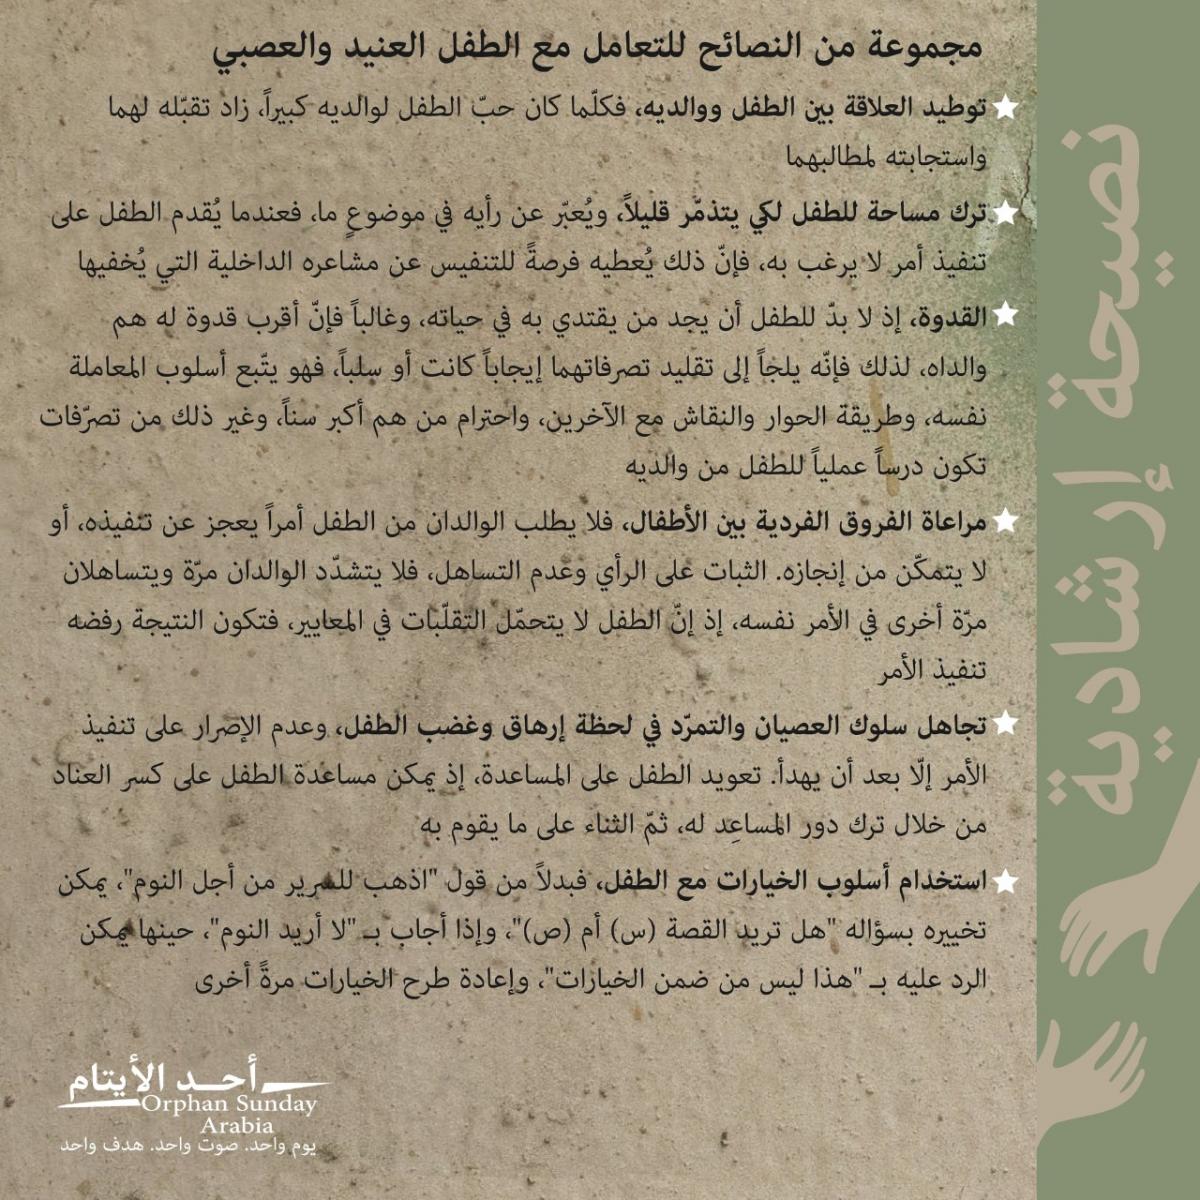 مجموعة من النصائح للتعامل مع الطفل العنيد والعصبي
توطيد العلاقة بين الطفل ووالديه، فكلّما كان حبّ الطفل لوالديه كبيراً، زاد تقبّله لهما
واستجابته لمطالبهما
ترك مساحة للطفل لكي يتذمّر قليلاً، ويُعبّر عن رأيه في موضوعٍ ما، فعندما يُقدم الطفل على
تنفيذ أمر لا يرغب به، فإنّ ذلك يُعطيه فرصةً للتنفيس عن مشاعره الداخلية التي يُخفيها
القدوة، إذ لا بدّ للطفل أن يجد من يقتدي به في حياته، وغالباً فإنّ أقرب قدوة له هم
والداه، لذلك فإنّه يلجأ إلى تقليد تصرفاتهما إيجاباً كانت أو سلباً، فهو يتّبع أسلوب المعاملة
نفسه، وطريقة الحوار والنقاش مع الآخرين، واحترام من هم أكبر سناً، وغير ذلك من تصرّفات
تكون درساً عملياً للطفل من والديه
مراعاة الفروق الفردية بين الأطفال، فلا يطلب الوالدان من الطفل أمراً يعجز عن تنفيذه، أو
لا يتمكّن من إنجازه. الثبات على الرأي وعدم التساهل، فلا يتشدّد الوالدان مرّة ويتساهلان
مرّة أخرى في الأمر نفسه، إذ إنّ الطفل لا يتحمّل التقلّبات في المعايير، فتكون النتيجة رفضه
تنفيذ الأمر
تجاهل سلوك العصيان والتمرّد في لحظة إرهاق وغضب الطفل، وعدم الإصرار على تنفيذ
الأمر إلّا بعد أن يهدأ. تعويد الطفل على المساعدة، إذ يمكن مساعدة الطفل على كسر العناد
من خلال ترك دور المساعِد له، ثمّ الثناء على ما يقوم به
استخدام أسلوب الخيارات مع الطفل، فبدلاً من قول "اذهب للسرير من أجل النوم"، يمكن
تخييره بسؤاله "هل تريد القصة (س) أم (ص)"، وإذا أجاب بـ "لا أريد النوم"، حينها يمكن
الرد عليه بـ "هذا ليس من ضمن الخيارات"، وإعادة طرح الخيارات مرةً أخرى
نصيحة إرشادية
أحد الأيتام
Orphan Sunday
Arabia
يوم واحد. صوت واحد. هدف واحد